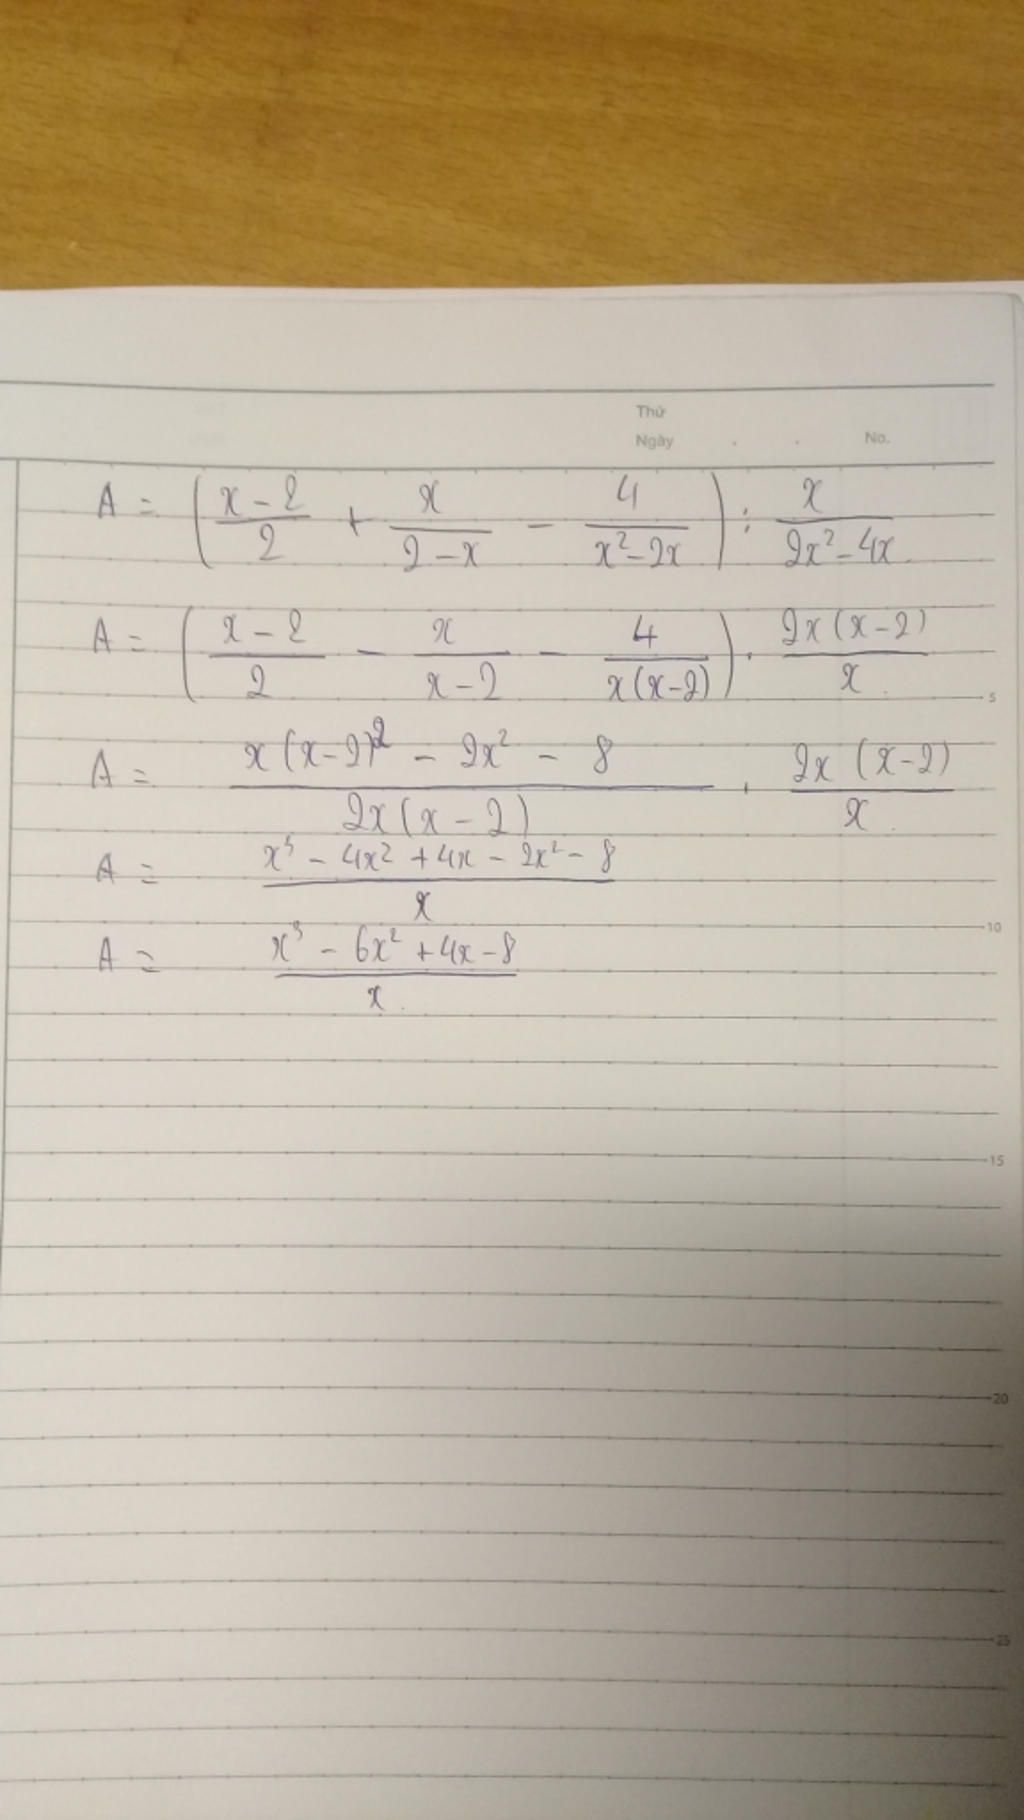 Thứ
Ngày . . No.
A = ( (x - 2)/2 + x/(2 - x) - 4/(x² - 2x) ) : x/(2x² - 4x)
A = ( (x - 2)/2 - x/(x - 2) - 4/(x(x-2)) ) . 2x(x-2)/x
5
A = (x(x-2)² - 2x² - 8)/(2x(x - 2)) . 2x(x-2)/x
A = (x³ - 4x² + 4x - 2x² - 8)/x
10
A = (x³ - 6x² + 4x - 8)/x
15
20
25